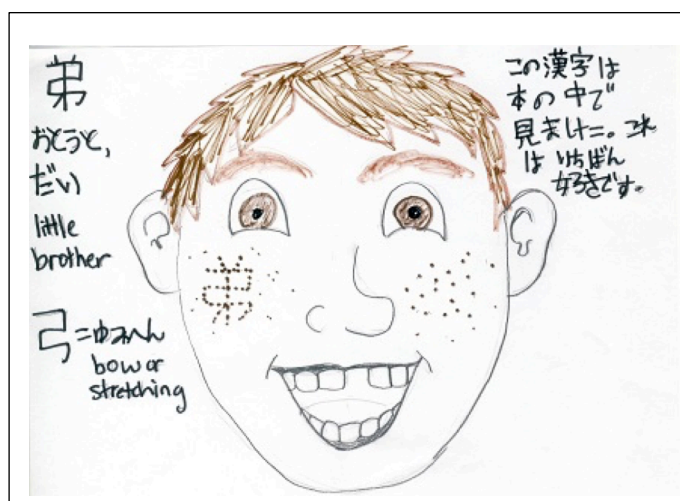 弟
おとうと,
だい
little
brother
弓=ゆみへん
bow or
stretching
弟
この漢字は
本の中で
見ました。これ
はいちばん
好きです。